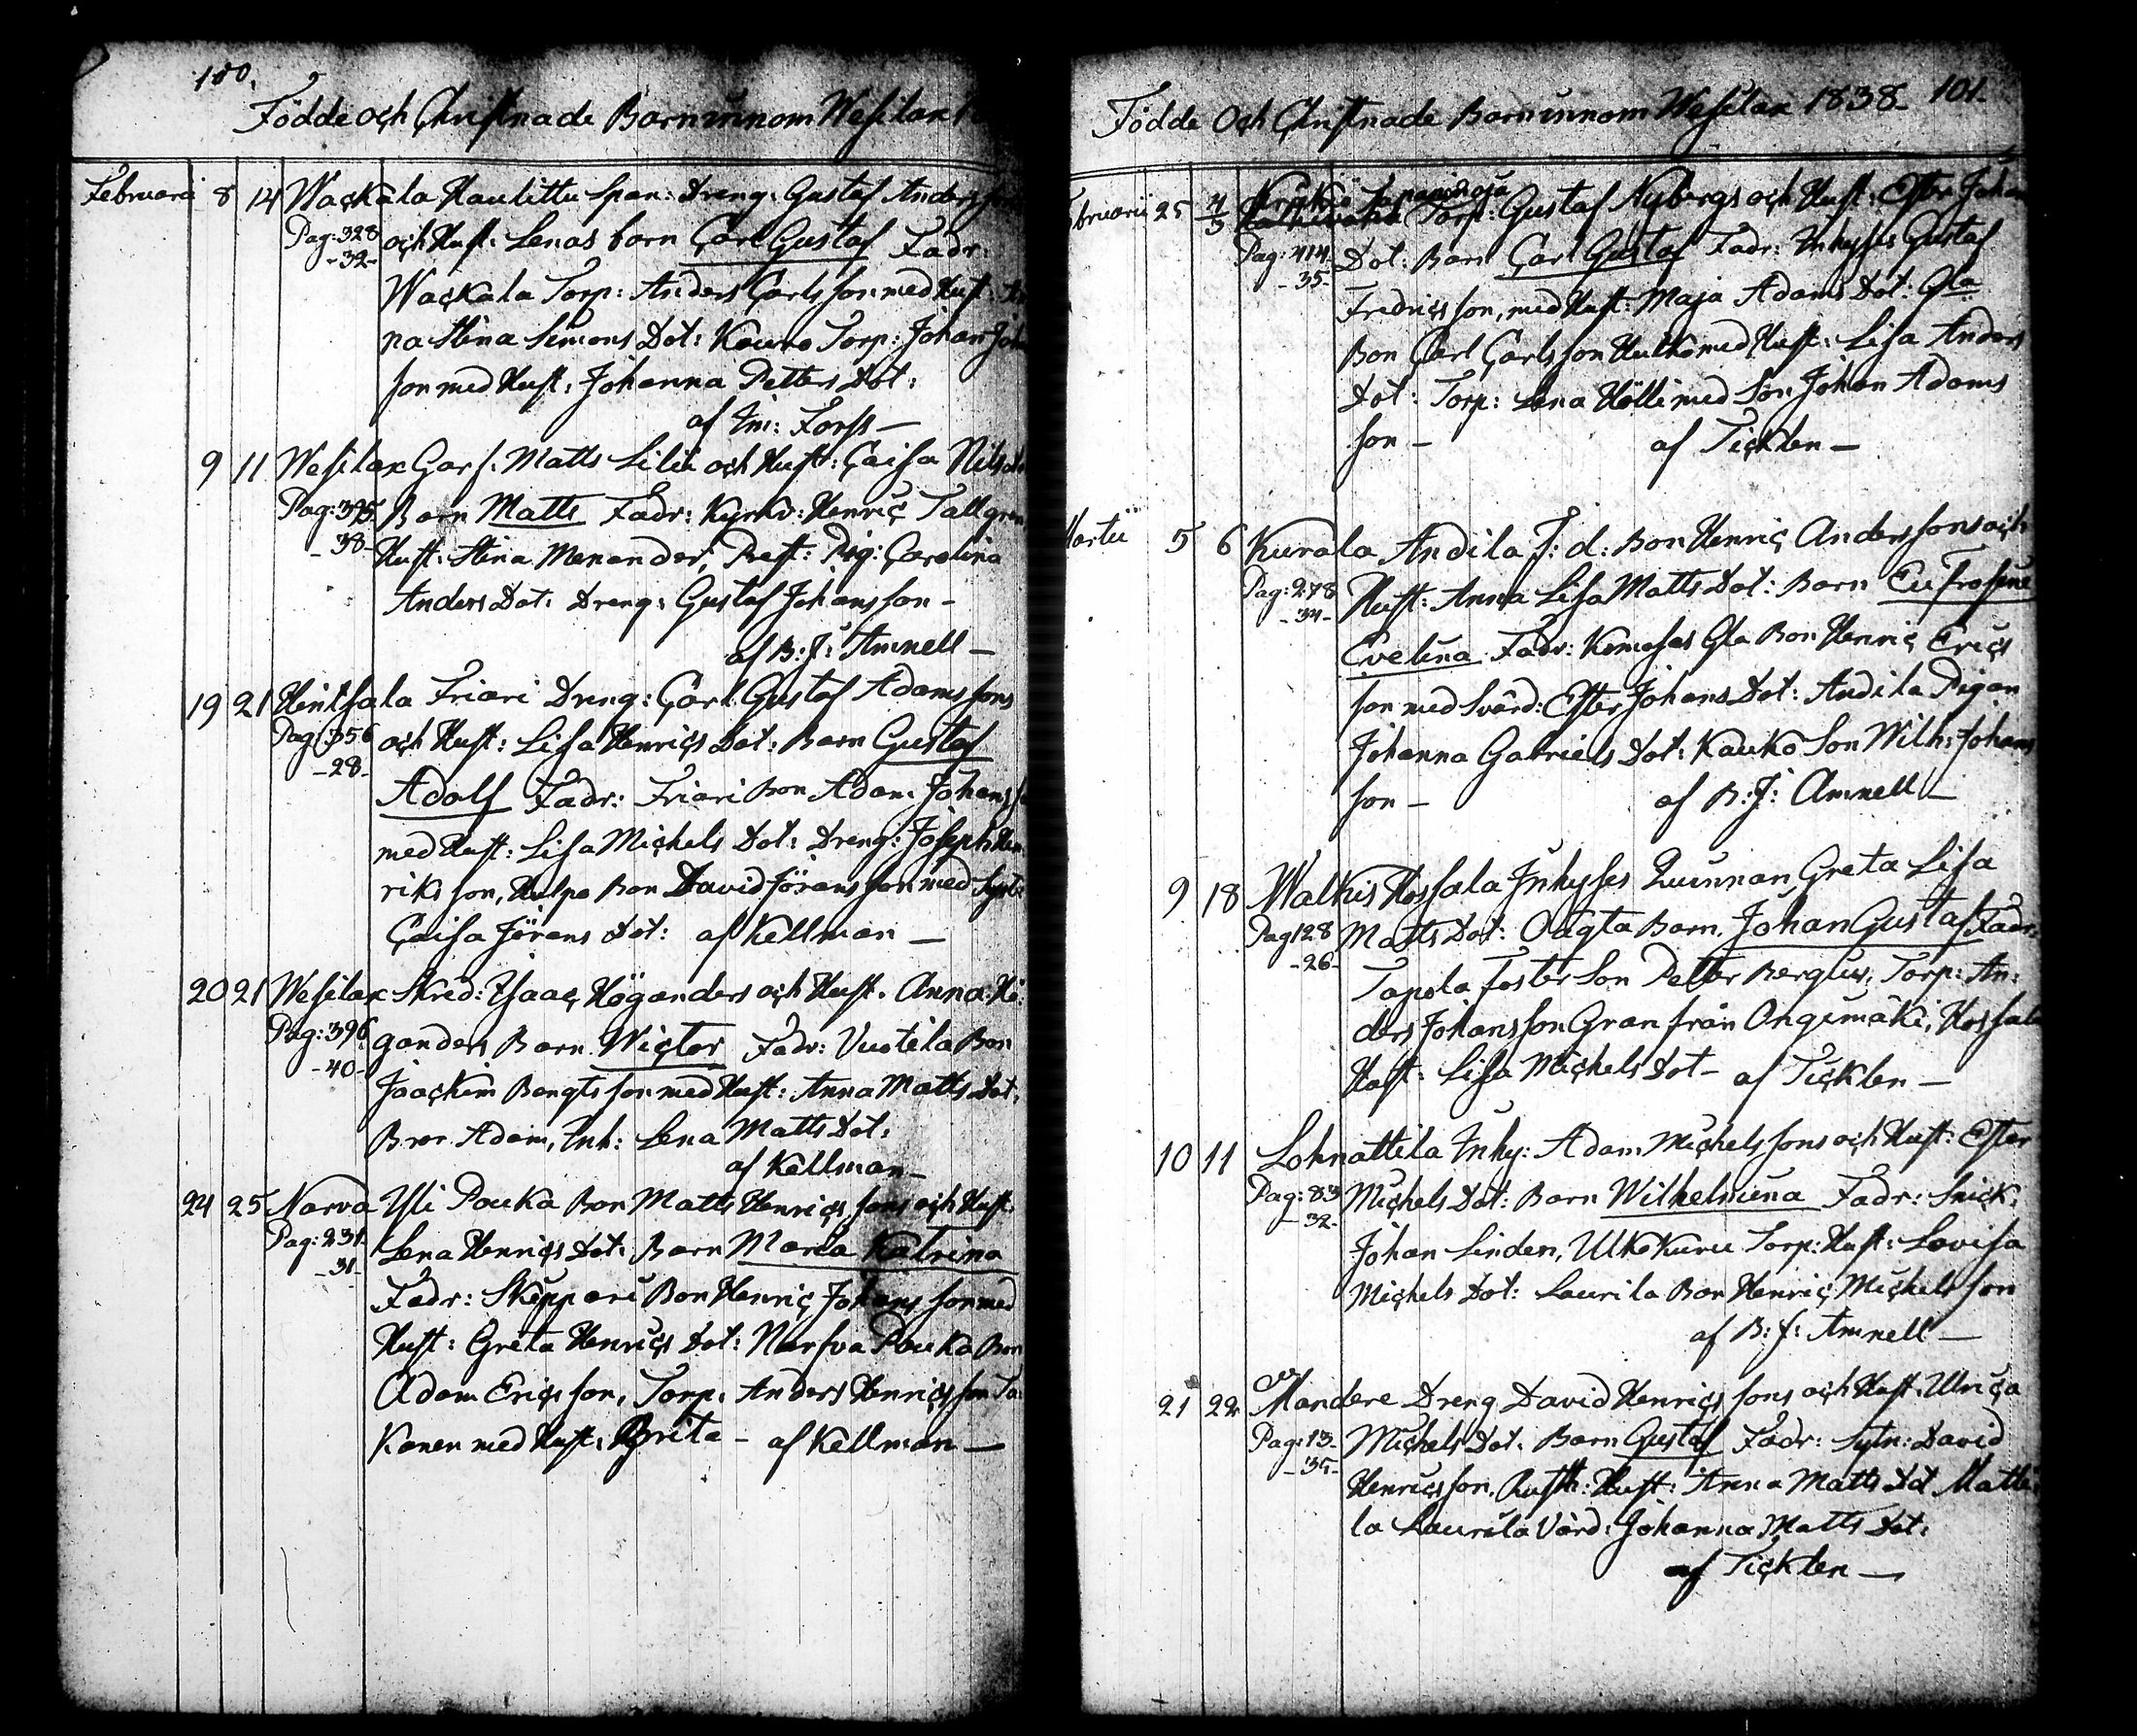 100.
Födde och Christnade Barn innom Wesilax
Februari 8 14 Wackala Haulittu Span: Dreng: Gustaf Anders
Pag: 328 och Hust: Lenas barn Carl Gustaf Fadr:
-32-
Wackala Torp: Anders Carls son med Hust:
na Stina Simons Dot: Kouro Torp: Johan
son med Hust: Johanna Petters Dot:
af Forss —
9 11 Wesilax Garf: Matts Lilii och Hust: Caisa Nils
Pag: 395 Barn Matts Fadr: Kyrkv: Henric Tallgren
-38-
Hust: Stina Menander, Prest: Pig: Carolina
Anders Dot: Dreng: Gustaf Johans son —
af B: J: Amnell —
19 21 Hinsala Friari Dreng: Carl Gustaf Adams sons
Pag: 356 och Hust: Lisa Henrics Dot: Barn Gustaf
-28-
Adolf Fadr: Friari Bon Adam Johans
med Hust: Lisa Michels Dot: Dreng: Joseph Hen
riks son, Hulpo Bon David Jörans son med
Caisa Jörans Dot: af Kellman —
20 21 Wesilax Skred: Ysaac Höganders och Hust. Anna Hö
Pag: 396 ganders Barn Wictor Fadr: Vuotila Bon
-40-
Joachim Bengts son med Hust: Anna Matts Dot:
Bror Adam, Inh: Lena Matts Dot:
af Kellman —
24 25 Narva Yli Pouka Bon Matts Henrics sons och Hust:
Pag: 231 Lena Henrics Dot: Barn Maria Katrina
-31-
Fadr: Skippari Bon Henric Johans son med
Hust: Greta Henrics Dot: Narfva Pouka Bon
Adam Erics son, Torp: Anders Henrics son
Konen med Hust: Brita — af Kellman —
101.
Födde Och Christnade Barn innom Wesilax 1838
bruarii 25 4/3 Torp: Gustaf Nybergs och Hust: Ester Johan
Pag: 414 Dot: Barn Carl Gustaf Fadr: Inhyses Gustaf
-35-
Fredrics son, med Hust: Maja Adams Dot: Gla
Bon Carl Carls son Huikko med Hust: Lisa Anders
Dot: Torp: Lena Hölli med Son Johan Adams
son — af Ticklen —
Martii 5 6 Kurala Andila F: d: Bon Henric Anders sons och
Pag: 278 Hust: Anna Lisa Matts Dot: Barn Eufrosine
-34-
Evelina Fadr: Komosas Gla Bon Henric Erics
son med Svärd: Ester Johans Dot: Andila Pigan
Johanna Gabriels Dot: Kauko Son Wilh: Johans
son — af B: J: Amnell —
9 18 Walkis Hossala Inhyses Quinnan Greta Lisa
Pag 128 Matts Dot: Oägta Barn Johan Gustaf Fadr:
-26-
Tapola Foster Son Petter Berglus, Torp: An:
ders Johans son Gran från Ongimäki, Hossala
Hust: Lisa Michels Dot — af Ticklen —
10 11 Lohnattila Inhy: Adam Michels sons och Hust: Ester
Pag: 83 Michels Dot: Barn Wilhelmina Fadr: Snick:
-32-
Johan Linden, Ulkokuru Torp: Hust: Lovisa
Michels Dot: Laurila Bon Henric Michels son
af B: J: Amnell —
21 22 Mandere Dreng David Henrics sons och Hust: Ulrica
Pag: 13 Michels Dot: Barn Gustaf Fadr: Sytn: David
-35-
Henrics son, Rusth: Hust: Anna Matts Dot Matti
la Laurila Värd: Johanna Matts Dot:
af Ticklen —